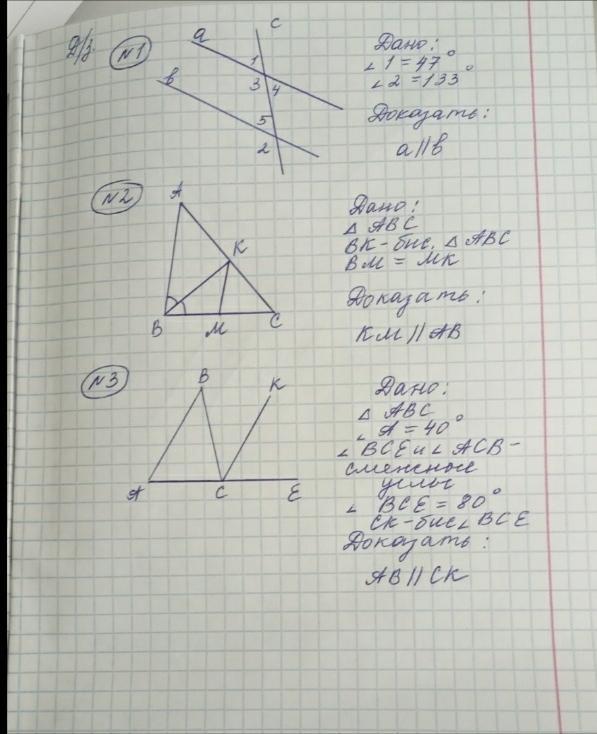 Д/з.
№1
a
c
1
3
4
b
5
2
Дано:
∠1=47°
∠2=133°
Доказать:
a||b
№2
A
K
B
M
C
Дано:
△ABC
BK-бис. △ABC
BM = MK
Доказать:
KM||AB
№3
B
K
A
C
E
Дано:
△ABC
∠A=40°
∠BCE и ∠ACB-
смежные
углы
∠BCE=80°
CK-бис∠BCE
Доказать:
AB||CK